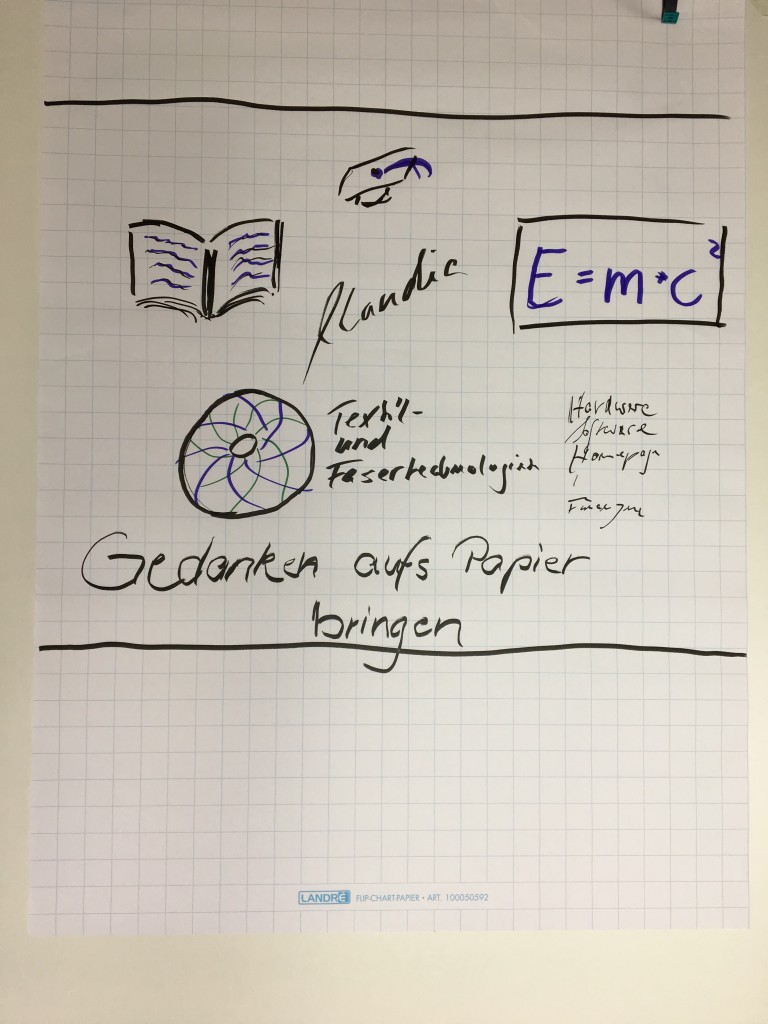 E = m * c²
Textil-
und
Fasertechnologien
Hardware
Software
Homepage
Gedanken aufs Papier
bringen
LANDRÉ FLIP-CHART-PAPIER • ART. 100050592